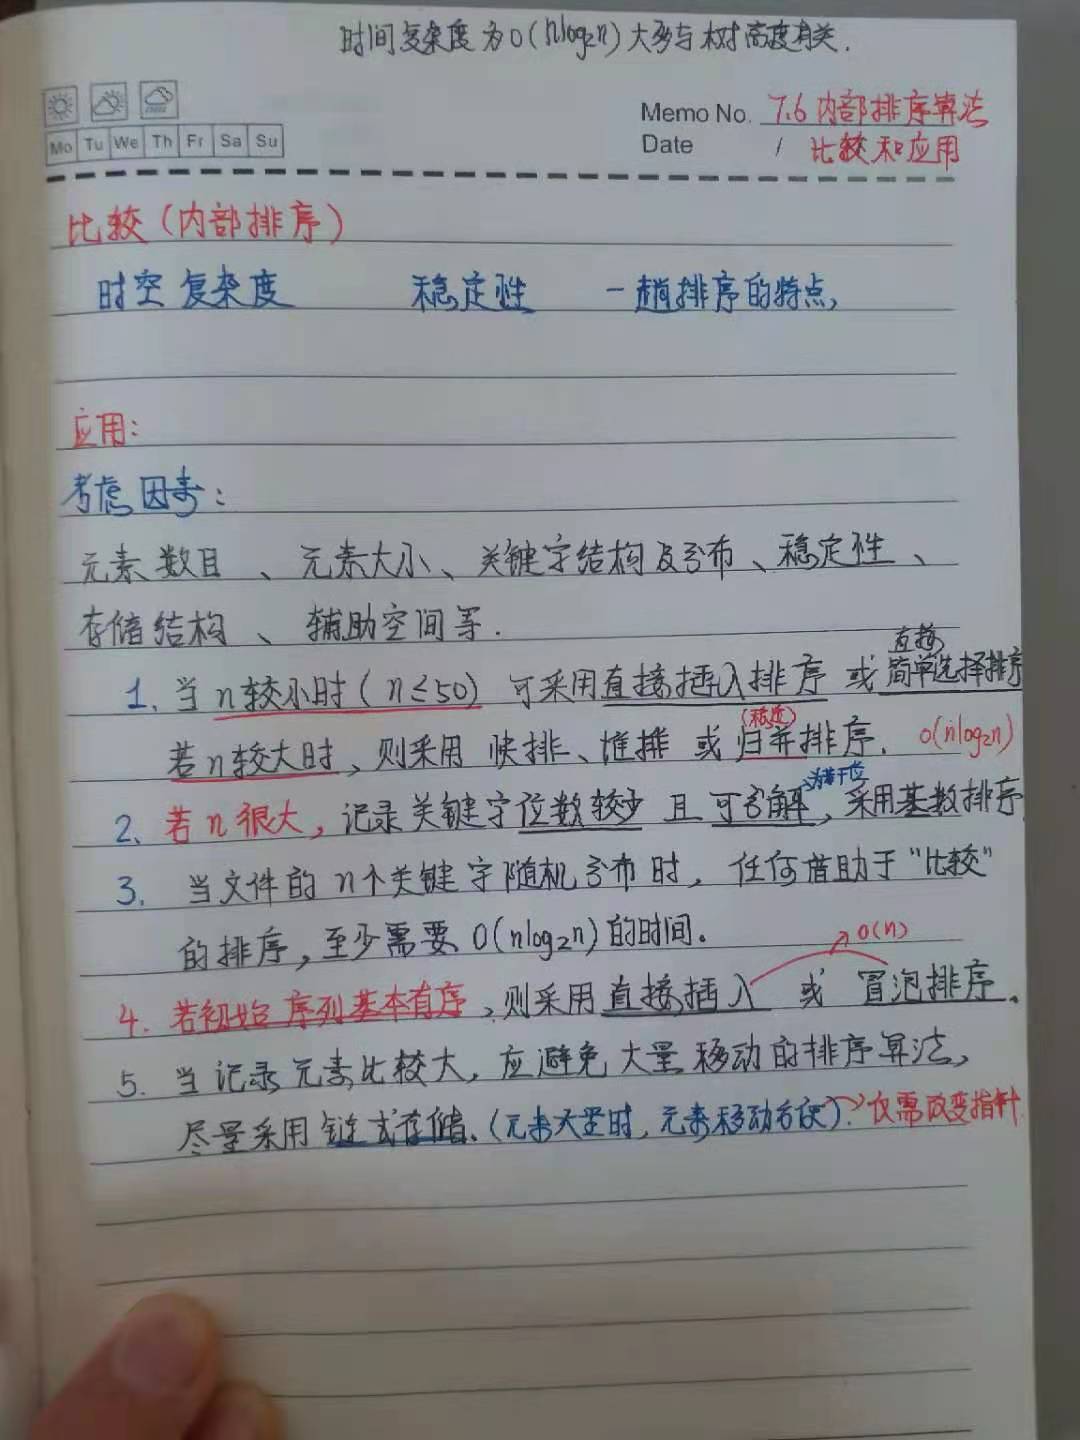 时间复杂度为O(nlog₂n)大多与树高度有关.
Memo No. 7.6内部排序算法
Mo Tu We Th Fr Sa Su
Date / 比较和应用
比较(内部排序)
时空复杂度 稳定性 一趟排序的特点,
应用:
考虑因素:
元素数目、元素大小、关键字结构及分布、稳定性、
存储结构、辅助空间等.
直接
1. 当n较小时(n≤50) 可采用直接插入排序 或 简单选择排序
(稳定)
若n较大时,则采用 快排、堆排 或 归并排序. O(nlog₂n)
为若干位
2. 若n很大,记录关键字位数较少 且 可分解,采用基数排序
3. 当文件的n个关键字随机分布时,任何借助于“比较”
的排序,至少需要O(nlog₂n)的时间.
O(n)
4. 若初始序列基本有序,则采用直接插入 或 冒泡排序.
5. 当记录元素比较大,应避免大量移动的排序算法,
尽量采用链式存储.(元素大量时,元素移动方便).仅需改变指针